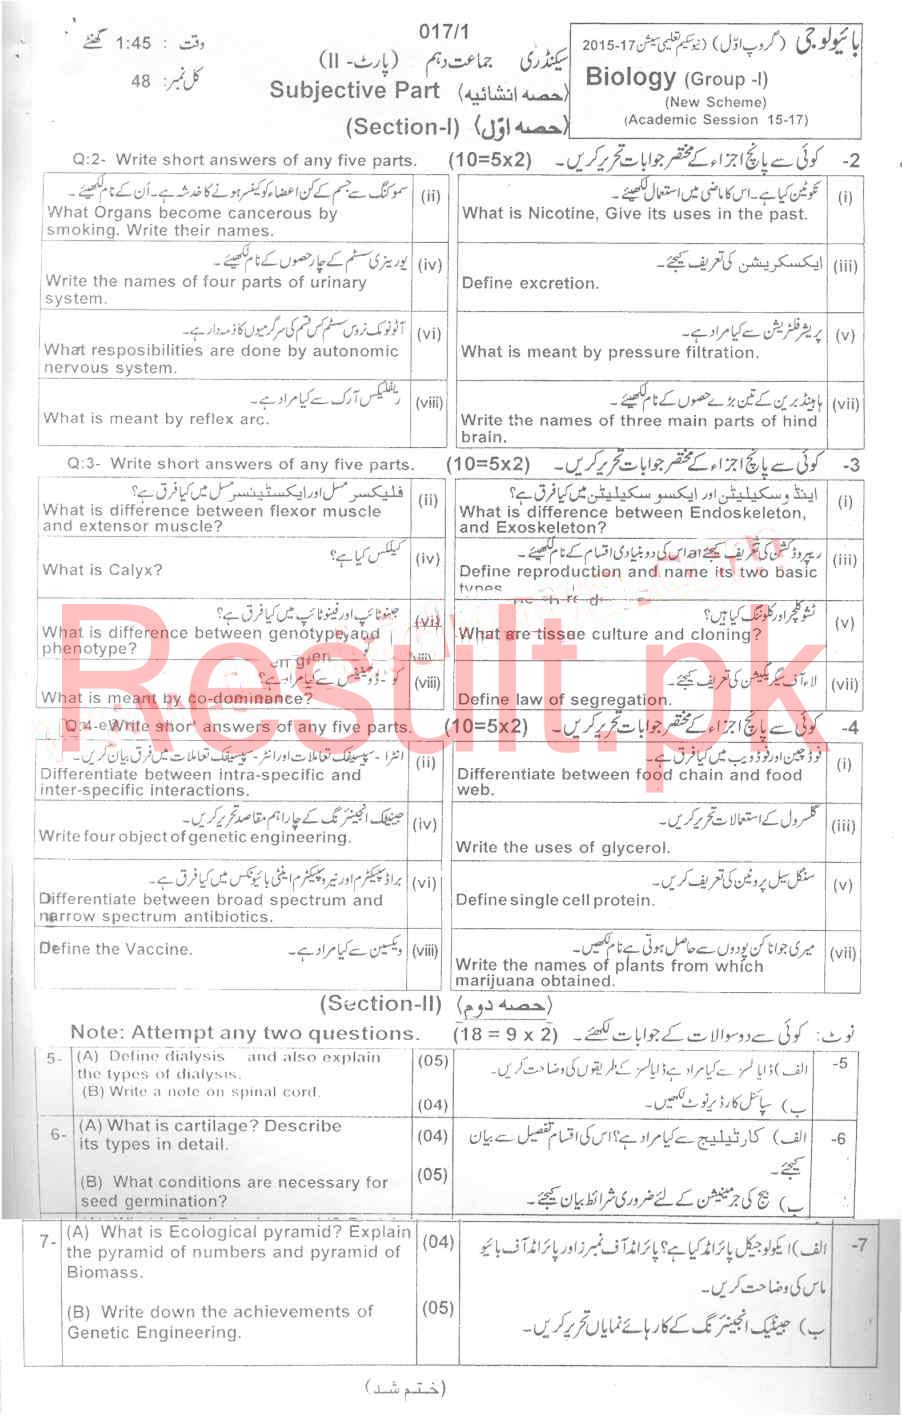 017/1
وقت : 1:45 گھنٹے
کل نمبر: 48
سیکنڈری جماعت دہم (پارٹ- II)
Subjective Part (حصہ انشائیہ)
(Section-I) (حصہ اوّل)
بائیولوجی (گروپ اوّل) (نیو سکیم تعلیمی سیشن 17-2015)
Biology (Group -I)
(New Scheme)
(Academic Session 15-17)
Q:2- Write short answers of any five parts. (10=5x2) کوئی سے پانچ اجزاء کے مختصر جوابات تحریر کریں۔ -2
(i) نکوٹین کیا ہے۔ اس کا ماضی میں استعمال لکھیئے۔
What is Nicotine, Give its uses in the past.
(ii) سموکنگ سے جسم کے کن اعضاء کو کینسر ہونے کا خدشہ ہے۔ اُن کے نام لکھیئے۔
What Organs become cancerous by
smoking. Write their names.
(iii) ایکسکریشن کی تعریف کیجئے۔
Define excretion.
(iv) یورینری سسٹم کے چار حصوں کے نام لکھیئے۔
Write the names of four parts of urinary
system.
(v) پریشر فلٹریشن سے کیا مراد ہے۔
What is meant by pressure filtration.
(vi) آٹونومک نروس سسٹم کس قسم کی سرگرمیوں کا ذمہ دار ہے۔
What resposibilities are done by autonomic
nervous system.
(vii) ہائینڈ برین کے تین بڑے حصوں کے نام لکھیئے۔
Write the names of three main parts of hind
brain.
(viii) ریفلیکس آرک سے کیا مراد ہے۔
What is meant by reflex arc.
Q:3- Write short answers of any five parts. (10=5x2) کوئی سے پانچ اجزاء کے مختصر جوابات تحریر کریں۔ -3
(i) اینڈوسکیلیٹن اور ایکسوسکیلیٹن میں کیا فرق ہے؟
What is difference between Endoskeleton,
and Exoskeleton?
(ii) فلیکسر مسل اور ایکسٹینسر مسل میں کیا فرق ہے؟
What is difference between flexor muscle
and extensor muscle?
(iii) ریپروڈکشن کی تعریف کیجئے اس کی دو بنیادی اقسام کے نام لکھیئے۔
Define reproduction and name its two basic
types
(iv) کیلکس کیا ہے؟
What is Calyx?
(v) ٹشو کلچر اور کلوننگ کیا ہیں؟
What are tissue culture and cloning?
(vi) جینوٹائپ اور فینوٹائپ میں کیا فرق ہے؟
What is difference between genotype and
phenotype?
(vii) لاء آف سیگریگیشن کی تعریف کیجئے۔
Define law of segregation.
(viii) کو - ڈومیننس سے کیا مراد ہے؟
What is meant by co-dominance?
Q:4- Write short answers of any five parts. (10=5x2) کوئی سے پانچ اجزاء کے مختصر جوابات تحریر کریں۔ -4
(i) فوڈ چین اور فوڈ ویب میں کیا فرق ہے۔
Differentiate between food chain and food
web.
(ii) انٹرا - سپیسیفک تعاملات اور انٹر - سپیسیفک تعاملات میں فرق بیان کریں۔
Differentiate between intra-specific and
inter-specific interactions.
(iii) گلسرول کے استعمالات تحریر کریں۔
Write the uses of glycerol.
(iv) جینیٹک انجینئرنگ کے چار اہم مقاصد تحریر کریں۔
Write four object of genetic engineering.
(v) سنگل سیل پروٹین کی تعریف کریں۔
Define single cell protein.
(vi) براڈ سپیکٹرم اور نیرو سپیکٹرم اینٹی بائیوٹکس میں کیا فرق ہے۔
Differentiate between broad spectrum and
narrow spectrum antibiotics.
(vii) میری جوانا کن پودوں سے حاصل ہوتی ہے نام لکھیں۔
Write the names of plants from which
marijuana obtained.
(viii) ویکسین سے کیا مراد ہے۔
Define the Vaccine.
(Section-II) (حصہ دوم)
Note: Attempt any two questions. (18 = 9 x 2) نوٹ: کوئی سے دو سوالات کے جوابات لکھئے۔
5- (A) Define dialysis and also explain (05)
the types of dialysis.
(B) Write a note on spinal cord. (04)
-5 الف) ڈایالسز سے کیا مراد ہے ڈایالسز کے طریقوں کی وضاحت کریں۔
ب) سپائنل کارڈ پر نوٹ لکھیں۔
6- (A) What is cartilage? Describe (04)
its types in detail.
(B) What conditions are necessary for (05)
seed germination?
-6 الف) کارٹیلیج سے کیا مراد ہے؟ اس کی اقسام تفصیل سے بیان
کیجئے۔
ب) بیج کی جرمینیشن کے لئے ضروری شرائط بیان کیجئے۔
7- (A) What is Ecological pyramid? Explain (04)
the pyramid of numbers and pyramid of
Biomass.
(B) Write down the achievements of (05)
Genetic Engineering.
-7 الف) ایکولوجیکل پائرامڈ کیا ہے؟ پائرامڈ آف نمبرز اور پائرامڈ آف بائیو
ماس کی وضاحت کریں۔
ب) جینیٹک انجینئرنگ کے کارہائے نمایاں تحریر کریں۔
(ختم شد)
Result.pk